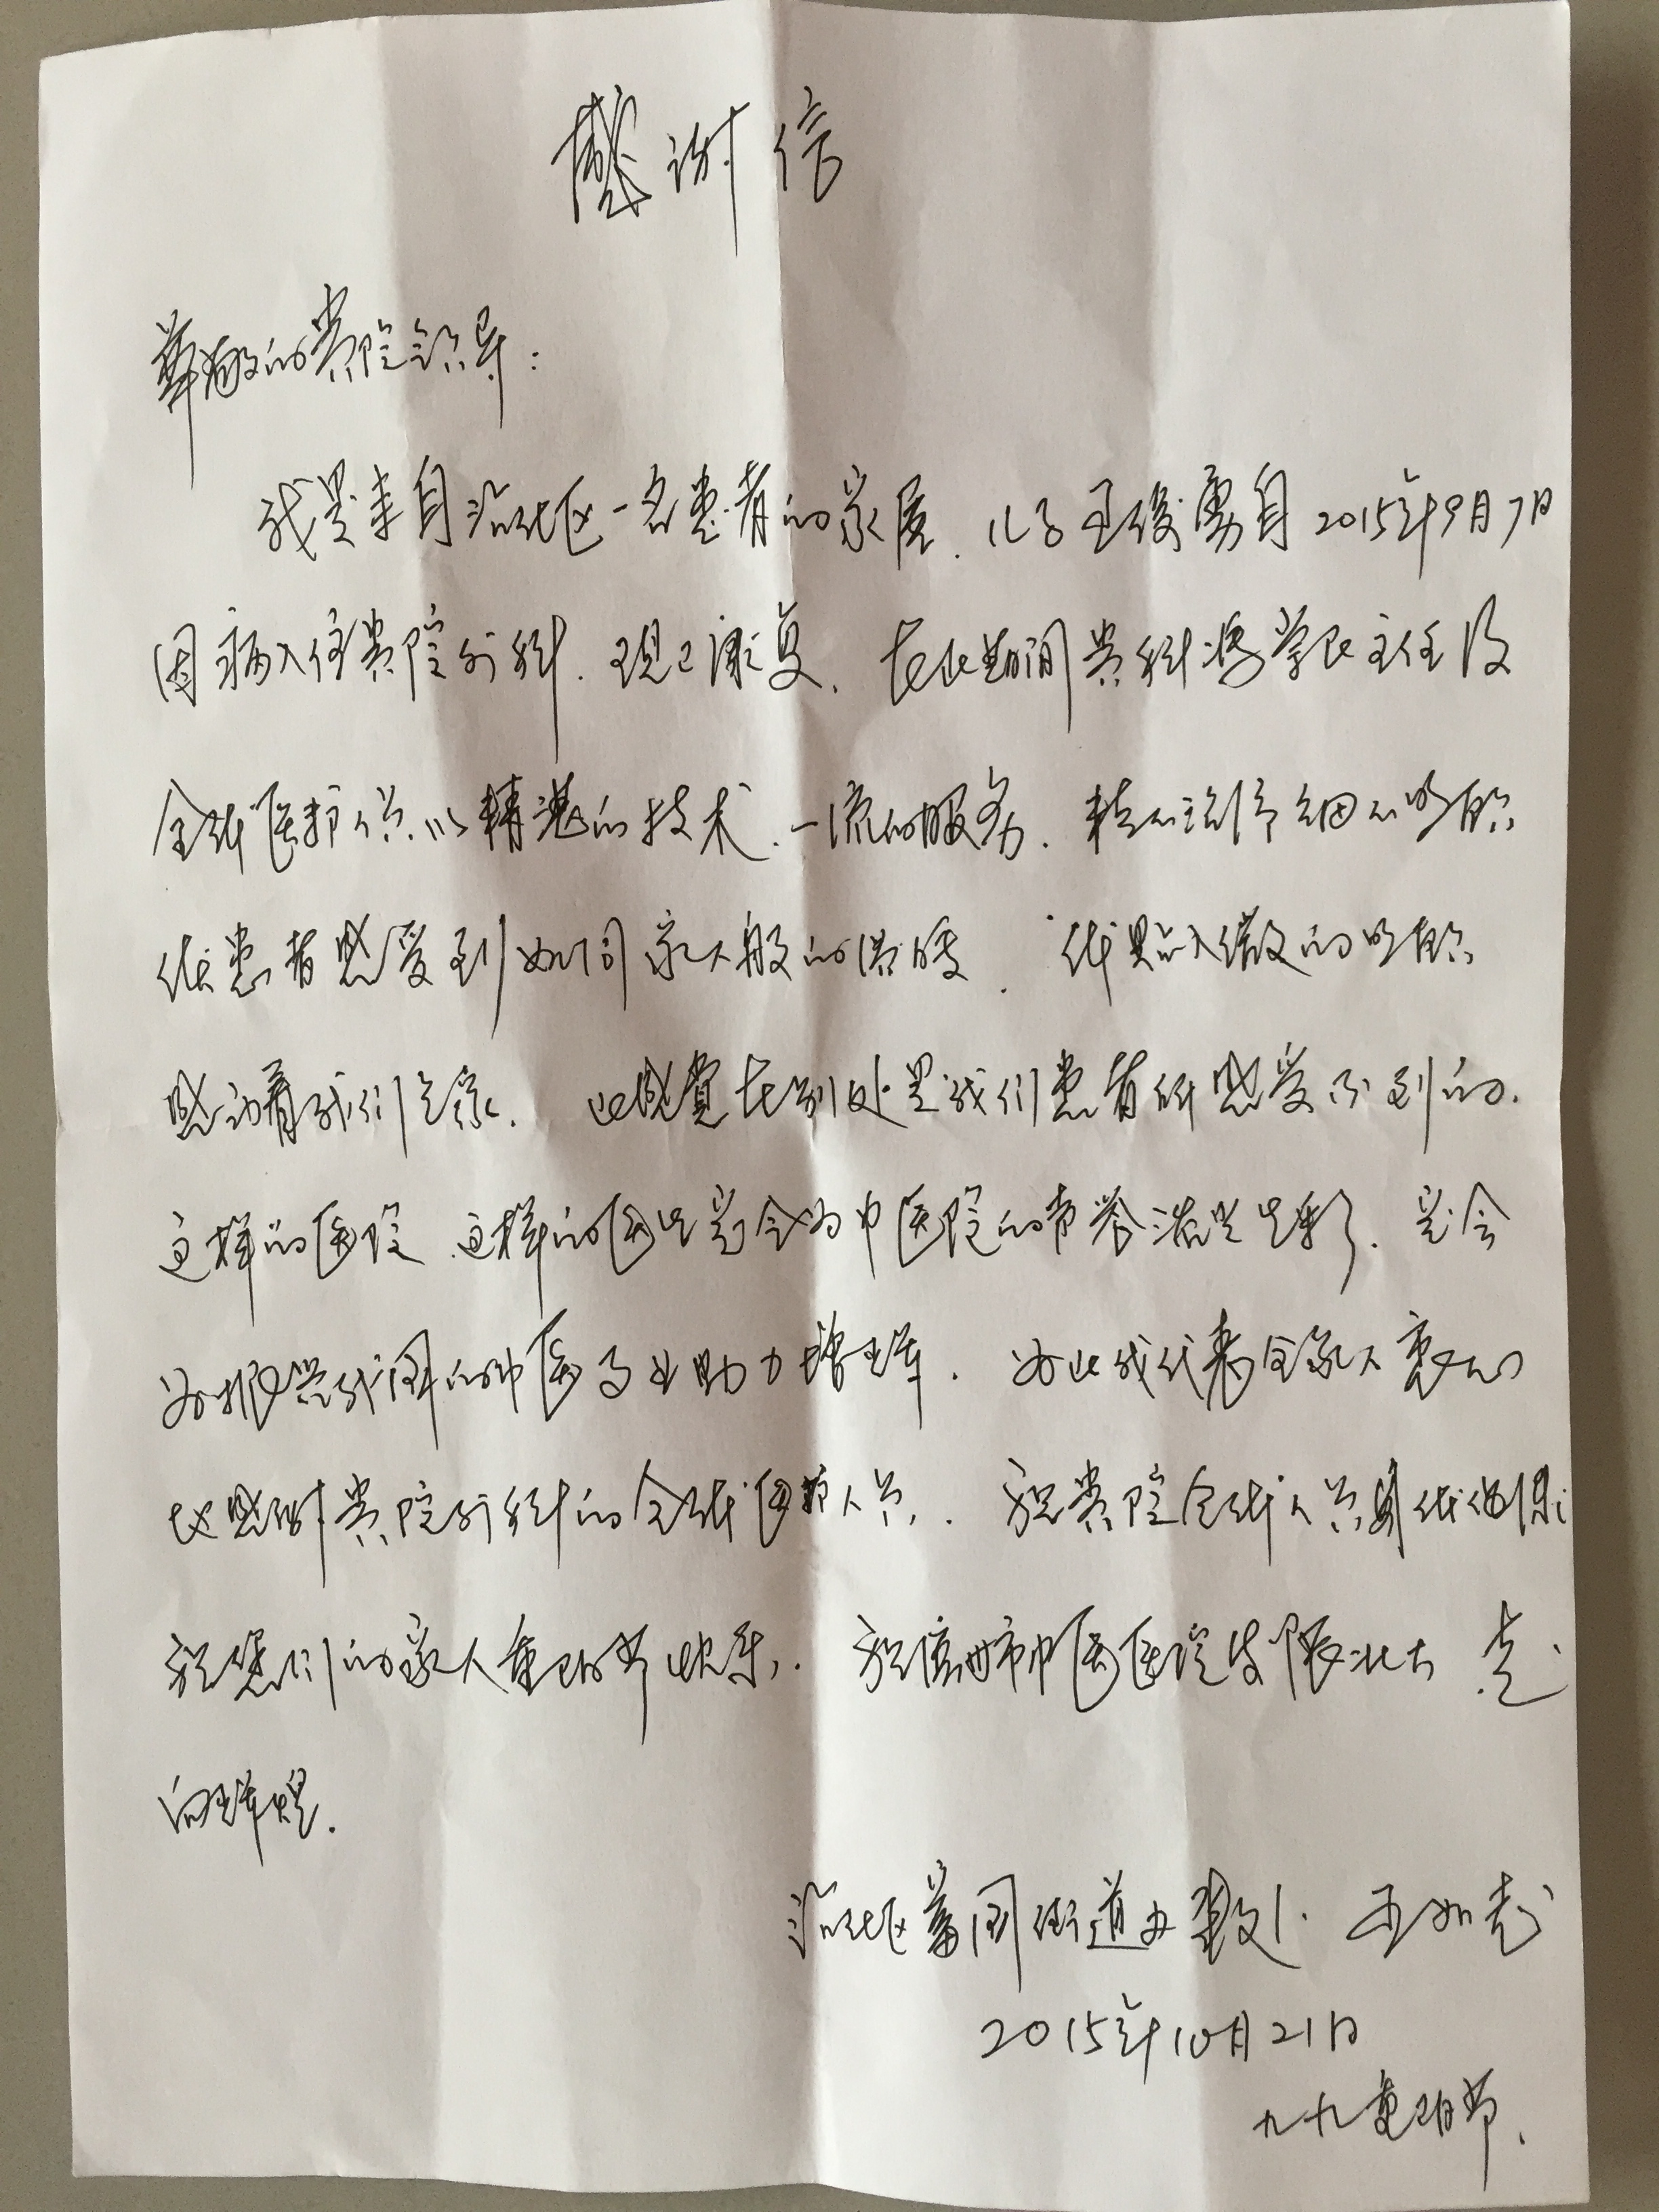 感谢信
尊敬的贵院领导：
我是来自临北区一名患者的家属.儿子王俊勇自2015年9月7日
因病入住贵院外科.现已康复.在此期间贵科 学民主任及
全体医护人员.以精湛的技术.一流的服务. 细心的照顾
使患者感受到如同家人般的温暖.体贴入微的照顾
感动着我们全家.此感觉在别处是我们患者所感受不到的.
这样的医院 这样的医生定会为中医院的声誉添光生彩.定会
为振兴我国的中医事业助力增辉.为此我代表全家人衷心
地感谢贵院外科的全体医护人员.祝贵院全体人员身体健康
祝您们的家人重阳节快乐.祝 市中医医院发展壮大 走
向辉煌.
街道办
2015年10月21日
九九重阳节.